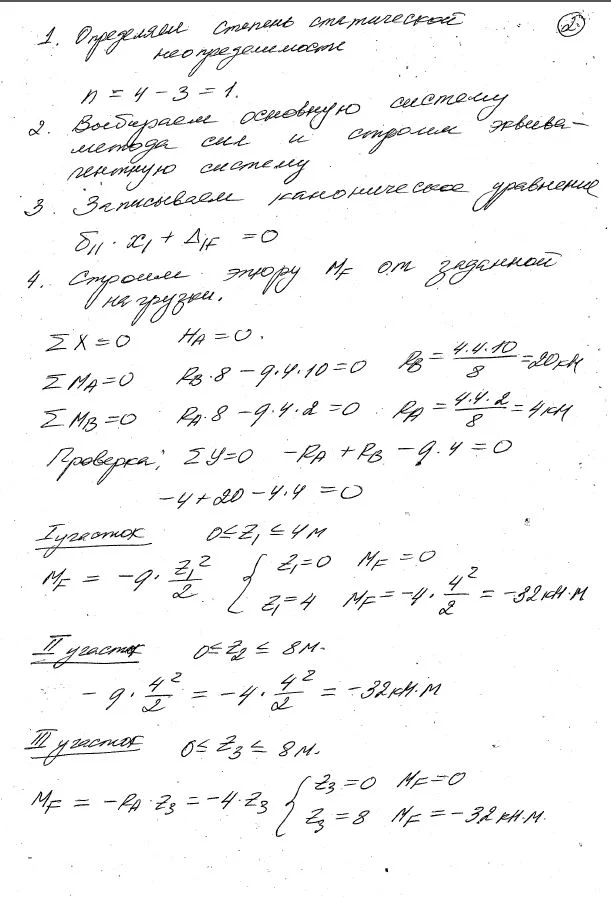 2.
1. Определяем степень статической
неопределимости
n = 4 - 3 = 1.
2. Выбираем основную систему
метода сил и строим эквива-
лентную систему
3 Записываем каноническое уравнение
δ₁₁ · x₁ + Δ₁F = 0
4. Строим эпюру MF от заданной
нагрузки.
ΣX=0 HA=0.
ΣMA=0 RB·8 - q·4·10=0 RB = 4·4·10/8 = 20кН
ΣMB=0 RA·8 - q·4·2=0 RA = 4·4·2/8 = 4кН
Проверка; ΣY=0 -RA + RB - q·4 = 0
-4+20-4·4=0
I участок 0≤Z₁≤4м
MF = -q · Z₁²/2 { Z₁=0 MF=0
Z₁=4 MF=-4·4²/2 = -32кН·м
II участок 0≤Z₂≤8м.
-q·4²/2 = -4·4²/2 = -32кН·м
III участок 0≤Z₃≤8м.
MF = -RA·Z₃ = -4·Z₃ { Z₃=0 MF=0
Z₃=8 MF=-32кН·м.